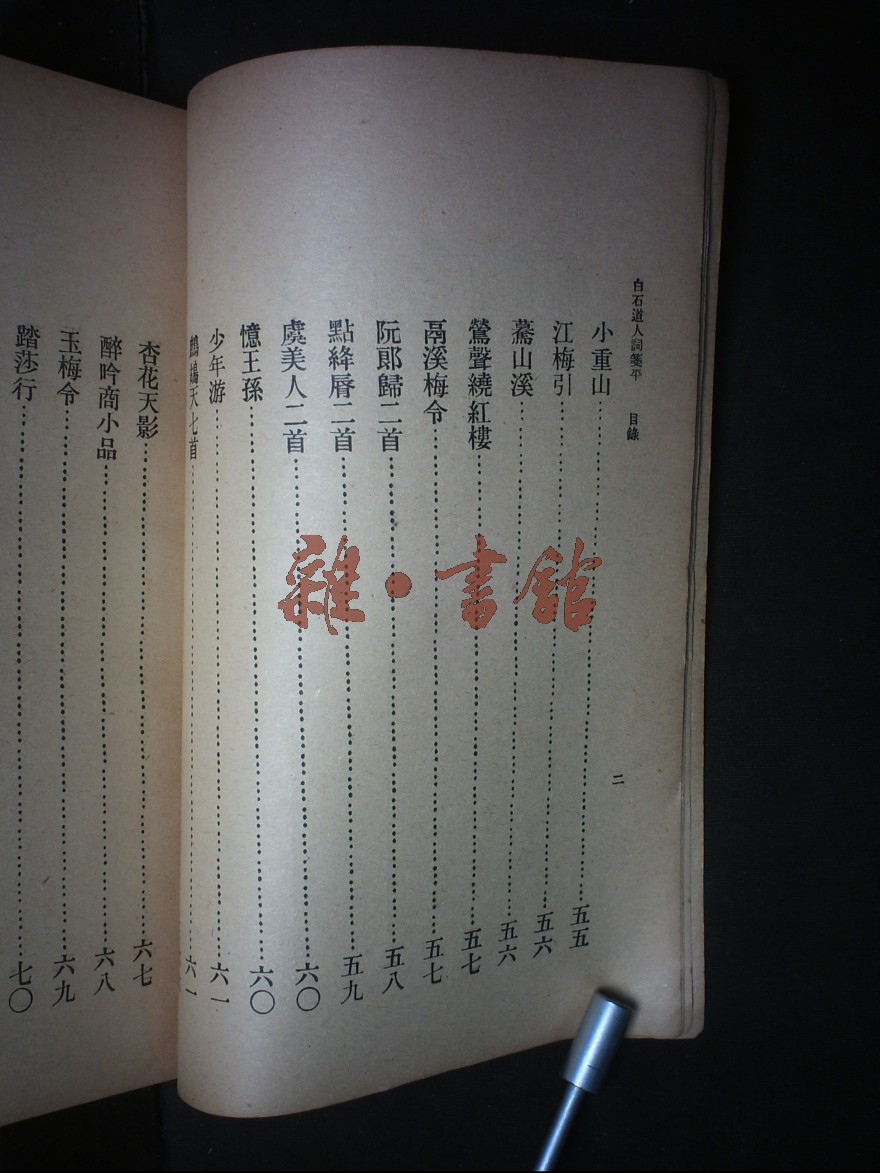 白石道人詞箋平 目錄 二
小重山……五五
江梅引……五六
驀山溪……五六
鶯聲繞紅樓……五七
鬲溪梅令……五七
阮郎歸二首……五八
點絳脣二首……五九
虞美人二首……六〇
憶王孫……六〇
少年游……六一
鷓鴣天七首……六一
杏花天影……六七
醉吟商小品……六八
玉梅令……六九
踏莎行……七〇
雜·書館